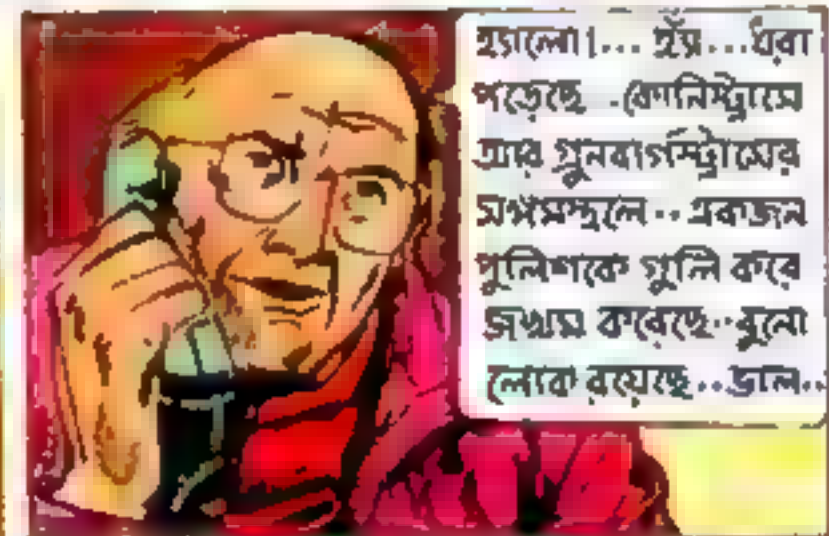 হ্যালো।... হ্যাঁ...ধরা
পড়েছে ..কোনিস্ট্রাসে
আর গ্রুনবার্গস্ট্রাসের
সঙ্গমস্থলে..একজন
পুলিশকে গুলি করে
জখম করেছে..বুনো
লোক রয়েছে..ভাল..